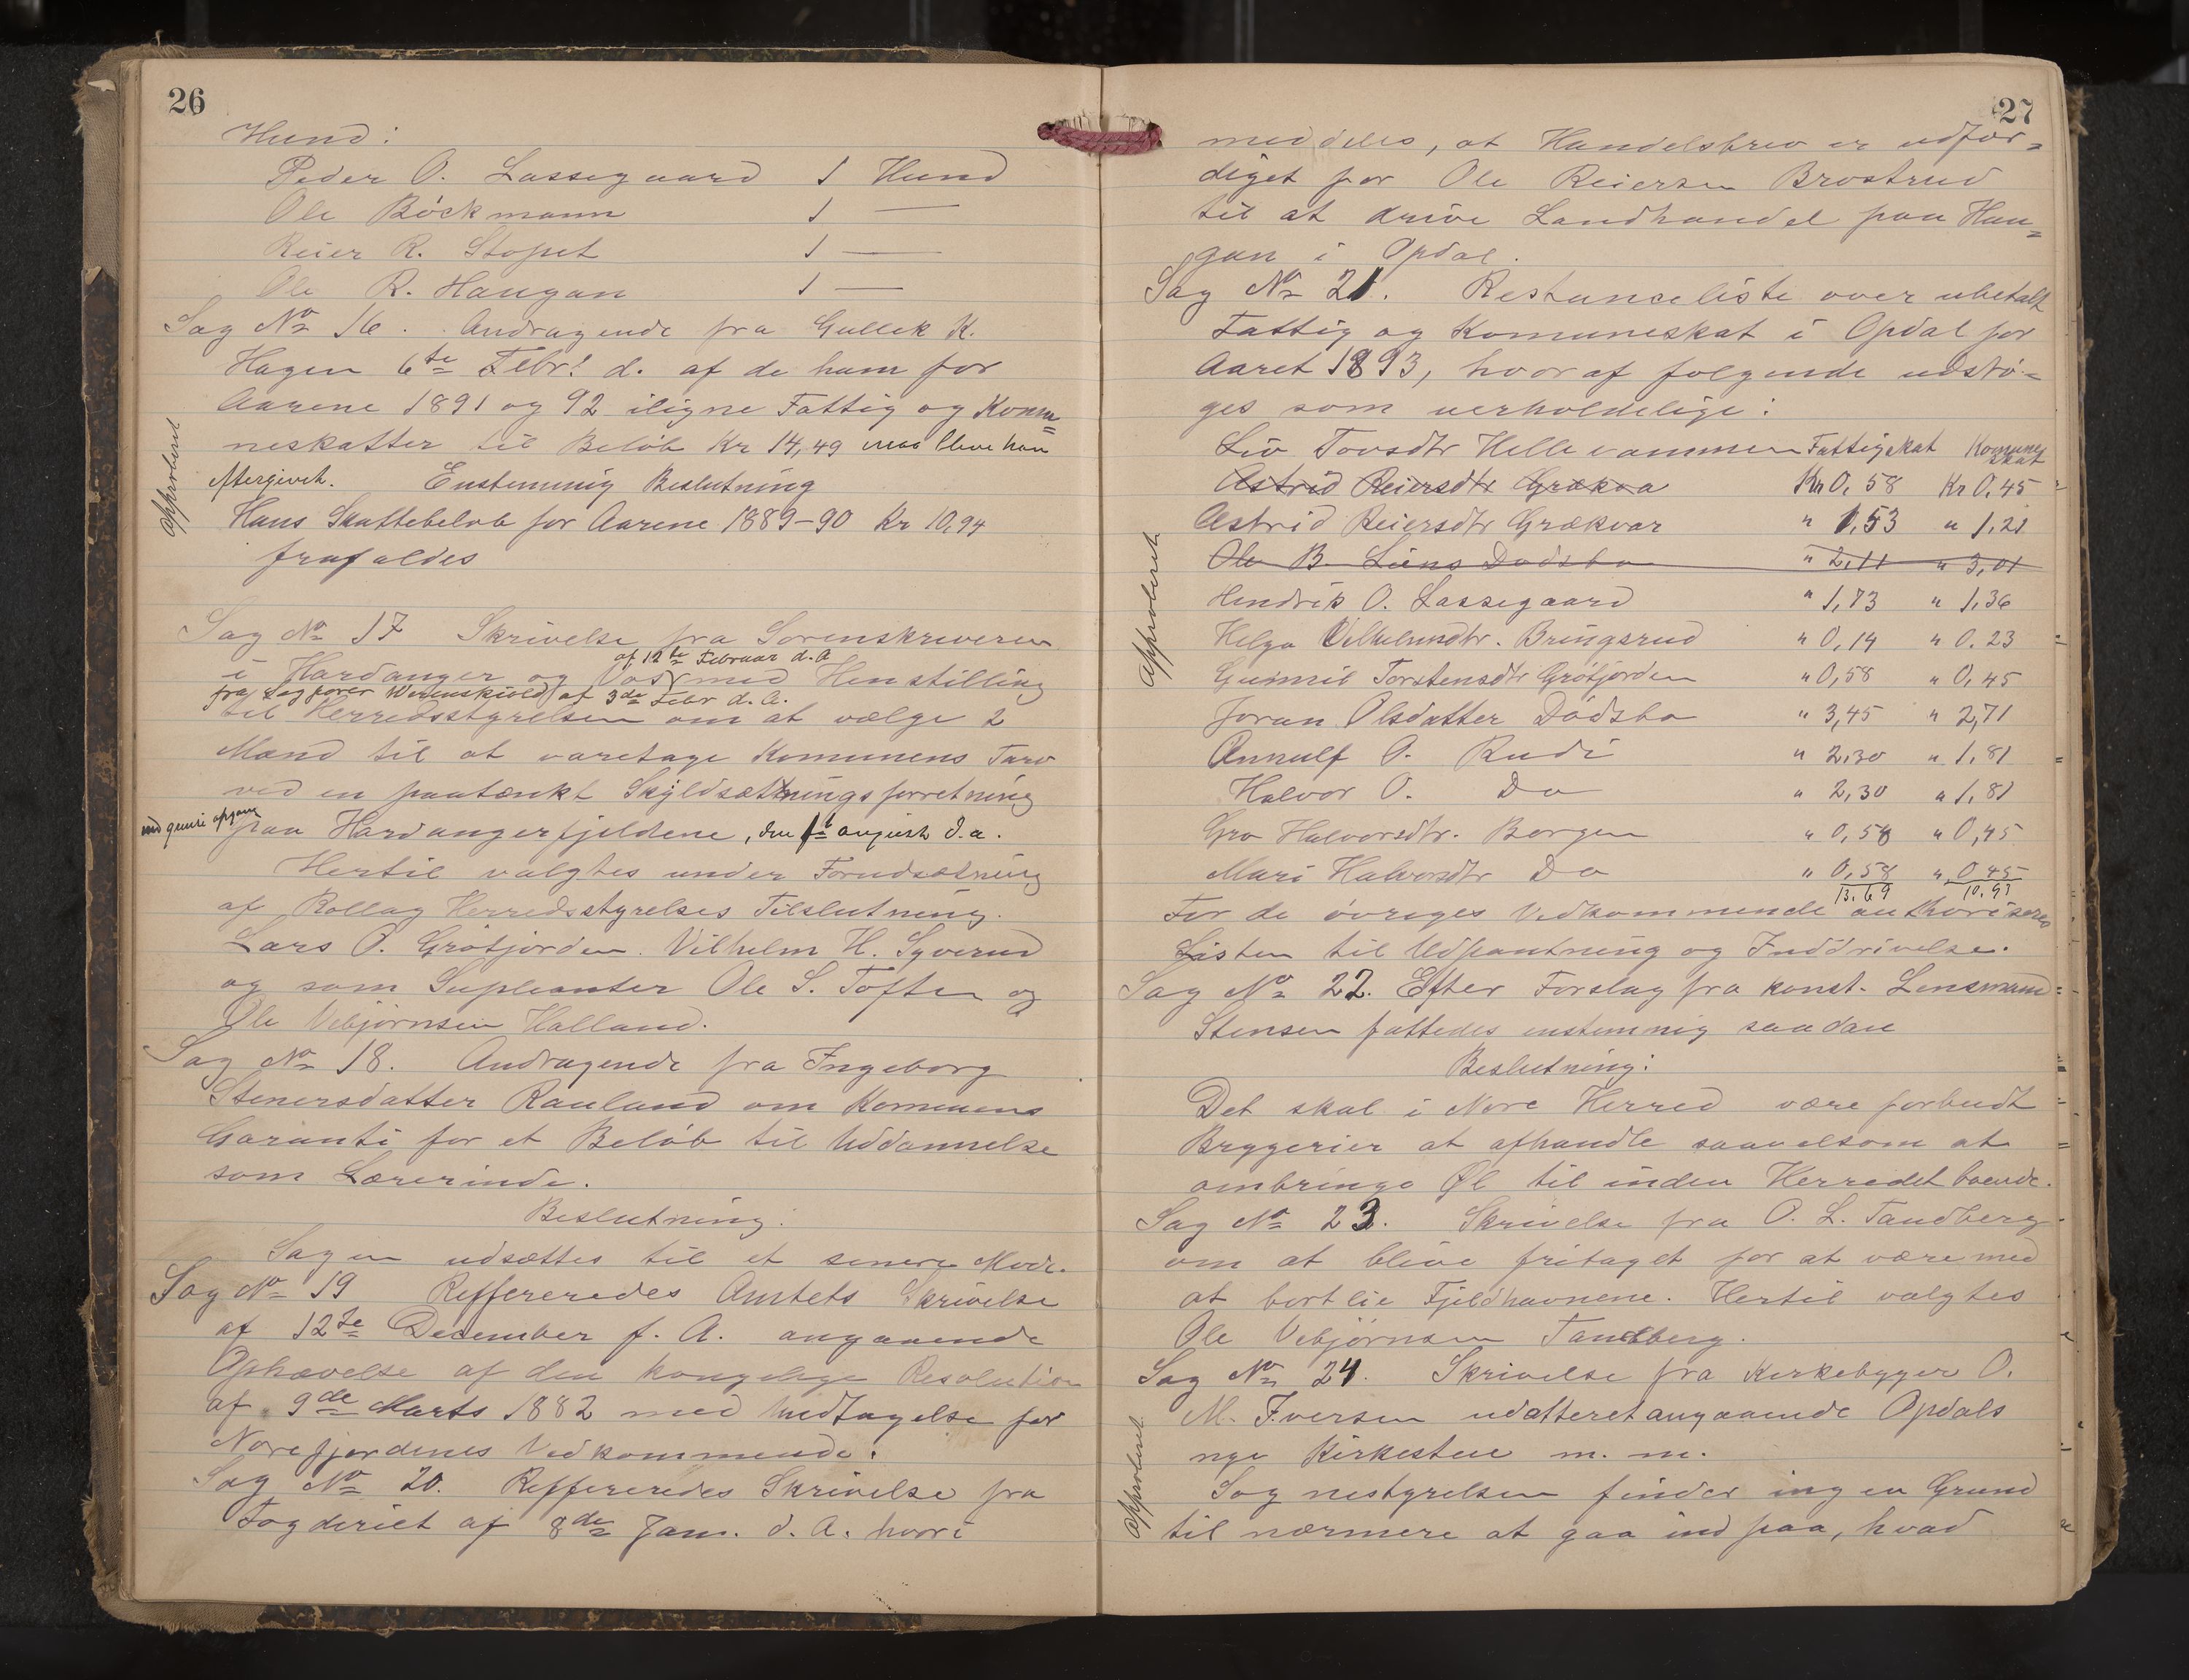 26
Hund:
Peder O. Lassegaard 1 Hund
Ole Böckmann 1 —
Reier R. Stopet 1 —
Ole R. Haugan 1 —
Sag No 16. Andragende fra Gullik K.
Hagen 6te Febr. d. af de ham for
Aarene 1891 og 92 iligne Fattig og Komu=
neskatter til Beløb Kr 14,49 maa blive ham
eftergivet. Enstemmig Beslutning
Approberet
Hans Skattebeløb for Aarene 1889-90 Kr 10,94
frafaldes
Sag No 17 Skrivelse fra Sorenskriveren
af 12te Februar d.A
i Hardanger og Vos med Henstilling
fra Sagfører Werenskiold af 3de Febr d.A.
til Herredsstyrelsen om at vælge 2
Mænd til at varetage Komunens Tarv
ved en paatænkt Skyldsætningsforretning
paa Hardangerfjeldene, den 1te august d.a.
Hertil valgtes under Forudsætning
af Rollag Herredsstyrelses Tilslutning.
Lars O. Grötjorden. Vilhelm H. Syverud
og som Supleanter Ole S. Toften og
Ole Vebjørnsen Halland.
Sag No 18. Andragende fra Ingeborg
Stenersdatter Rauland om Komunens
Garanti for et Beløb til Uddannelse
som Lærerinde.
Beslutning:
Sagen udsættes til et senere Møde.
Sag No 19 Reffereredes Amtets Skrivelse
af 12te December f. A. angaaende
Ophævelse af den kongelige Resolution
af 9de Marts 1882 med Undtagelse for
Norefjordenes Vedkommende.
Sag No 20. Reffereredes Skrivelse fra
Fogderiet af 8de Jan. d. A. hvori
27
meddeles, at Handelsbrev er udfær=
diget for Ole Reiersen Brostrud
til at drive Landhandel paa Hau=
gan i Opdal.
Sag No 21. Restanceliste over ubetalt
Fattig og Komuneskat i Opdal for
Aaret 1893, hvoraf følgende udstø=
ges som uerholdelige:
Liv Tovsdtr Hellevammen Fattigskat Komuneskat
Astrid Reiersdtr Grækva Kr 0,58 Kr 0,45
Astrid Reiersdtr Grækvar " 1,53 " 1,21
Ole B. Liens Dødsbo " 2,11 " 3,01
Approberet
Hendrik O. Lassegaard " 1,73 " 1,36
Helga Vilhelmsdtr. Bringsrud " 0,14 " 0.23
Gunnil Torstensdtr Grötjorden " 0,58 " 0,45
Joran Olsdatter Dødsbo " 3,45 " 2,71
Annulf O. Rudi " 2,30 " 1,81
Halvor O. Do " 2,30 " 1,81
Gro Halvorsdtr. Borgen " 0,58 " 0,45
Mari Halvorsdtr Do " 0,58 " 0,45
13.69 10.91
For de øvriges Vedkommende authoriseres
Listen til Udpantning og Inddrivelse.
Sag No 22. Efter Forslag fra konst. Lensmand
Stensen fattedes enstemmig saadan
Beslutning:
Det skal i Nore Herred være forbudt
Bryggerier at afhandle saavelsom at
ombringe Øl til inden Herredet boende.
Sag No 23. Skrivelse fra O. L. Tandberg
om at blive fritaget for at være med
at bortlie Fjeldhavnene. Hertil valgtes
Ole Vebjørnsen Tandberg.
Sag No 24. Skrivelse fra Kirkebygger O.
M. Iversen udatteret angaaende Opdals
nye Kirkesten m. m.
Approberet
Sognestyrelsen finder ingen Grund
til nærmere at gaa ind paa, hvad